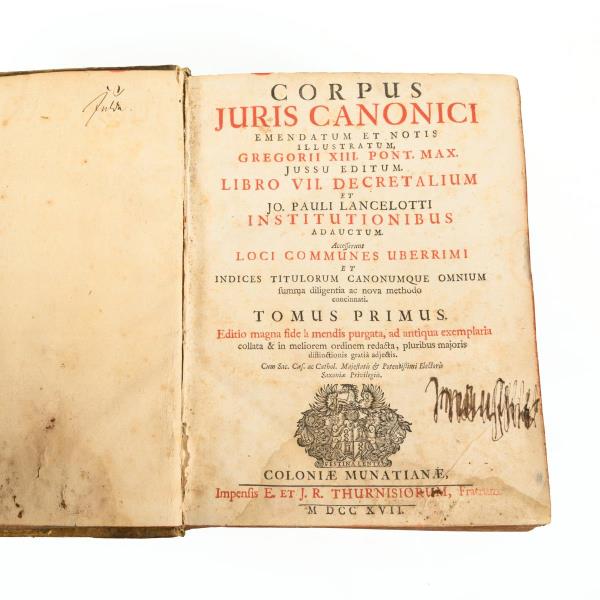 CORPUS
JURIS CANONICI
EMENDATUM ET NOTIS
ILLUSTRATUM,
GREGORII XIII. PONT. MAX.
JUSSU EDITUM.
LIBRO VII. DECRETALIUM
ET
JO. PAULI LANCELOTTI
INSTITUTIONIBUS
ADAUCTUM.
Accesserunt
LOCI COMMUNES UBERRIMI
ET
INDICES TITULORUM CANONUMQUE OMNIUM
summa diligentia ac nova methodo
concinnati.
TOMUS PRIMUS.
Editio magna fide à mendis purgata, ad antiqua exemplaria
collata & in meliorem ordinem redacta, pluribus majoris
distinctionis gratiâ adjectis.
Cum Sac. Cæs. ac Cathol. Majestatis & Potentissimi Electoris
Saxoniæ Privilegiis.
FESTINA LENTE
COLONIÆ MUNATIANÆ,
Impensis E. ET J. R. THURNISIORUM, Fratrum.
M DCC XVII.